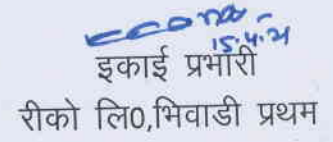 15.4.21
इकाई प्रभारी
रीको लि0,भिवाडी प्रथम